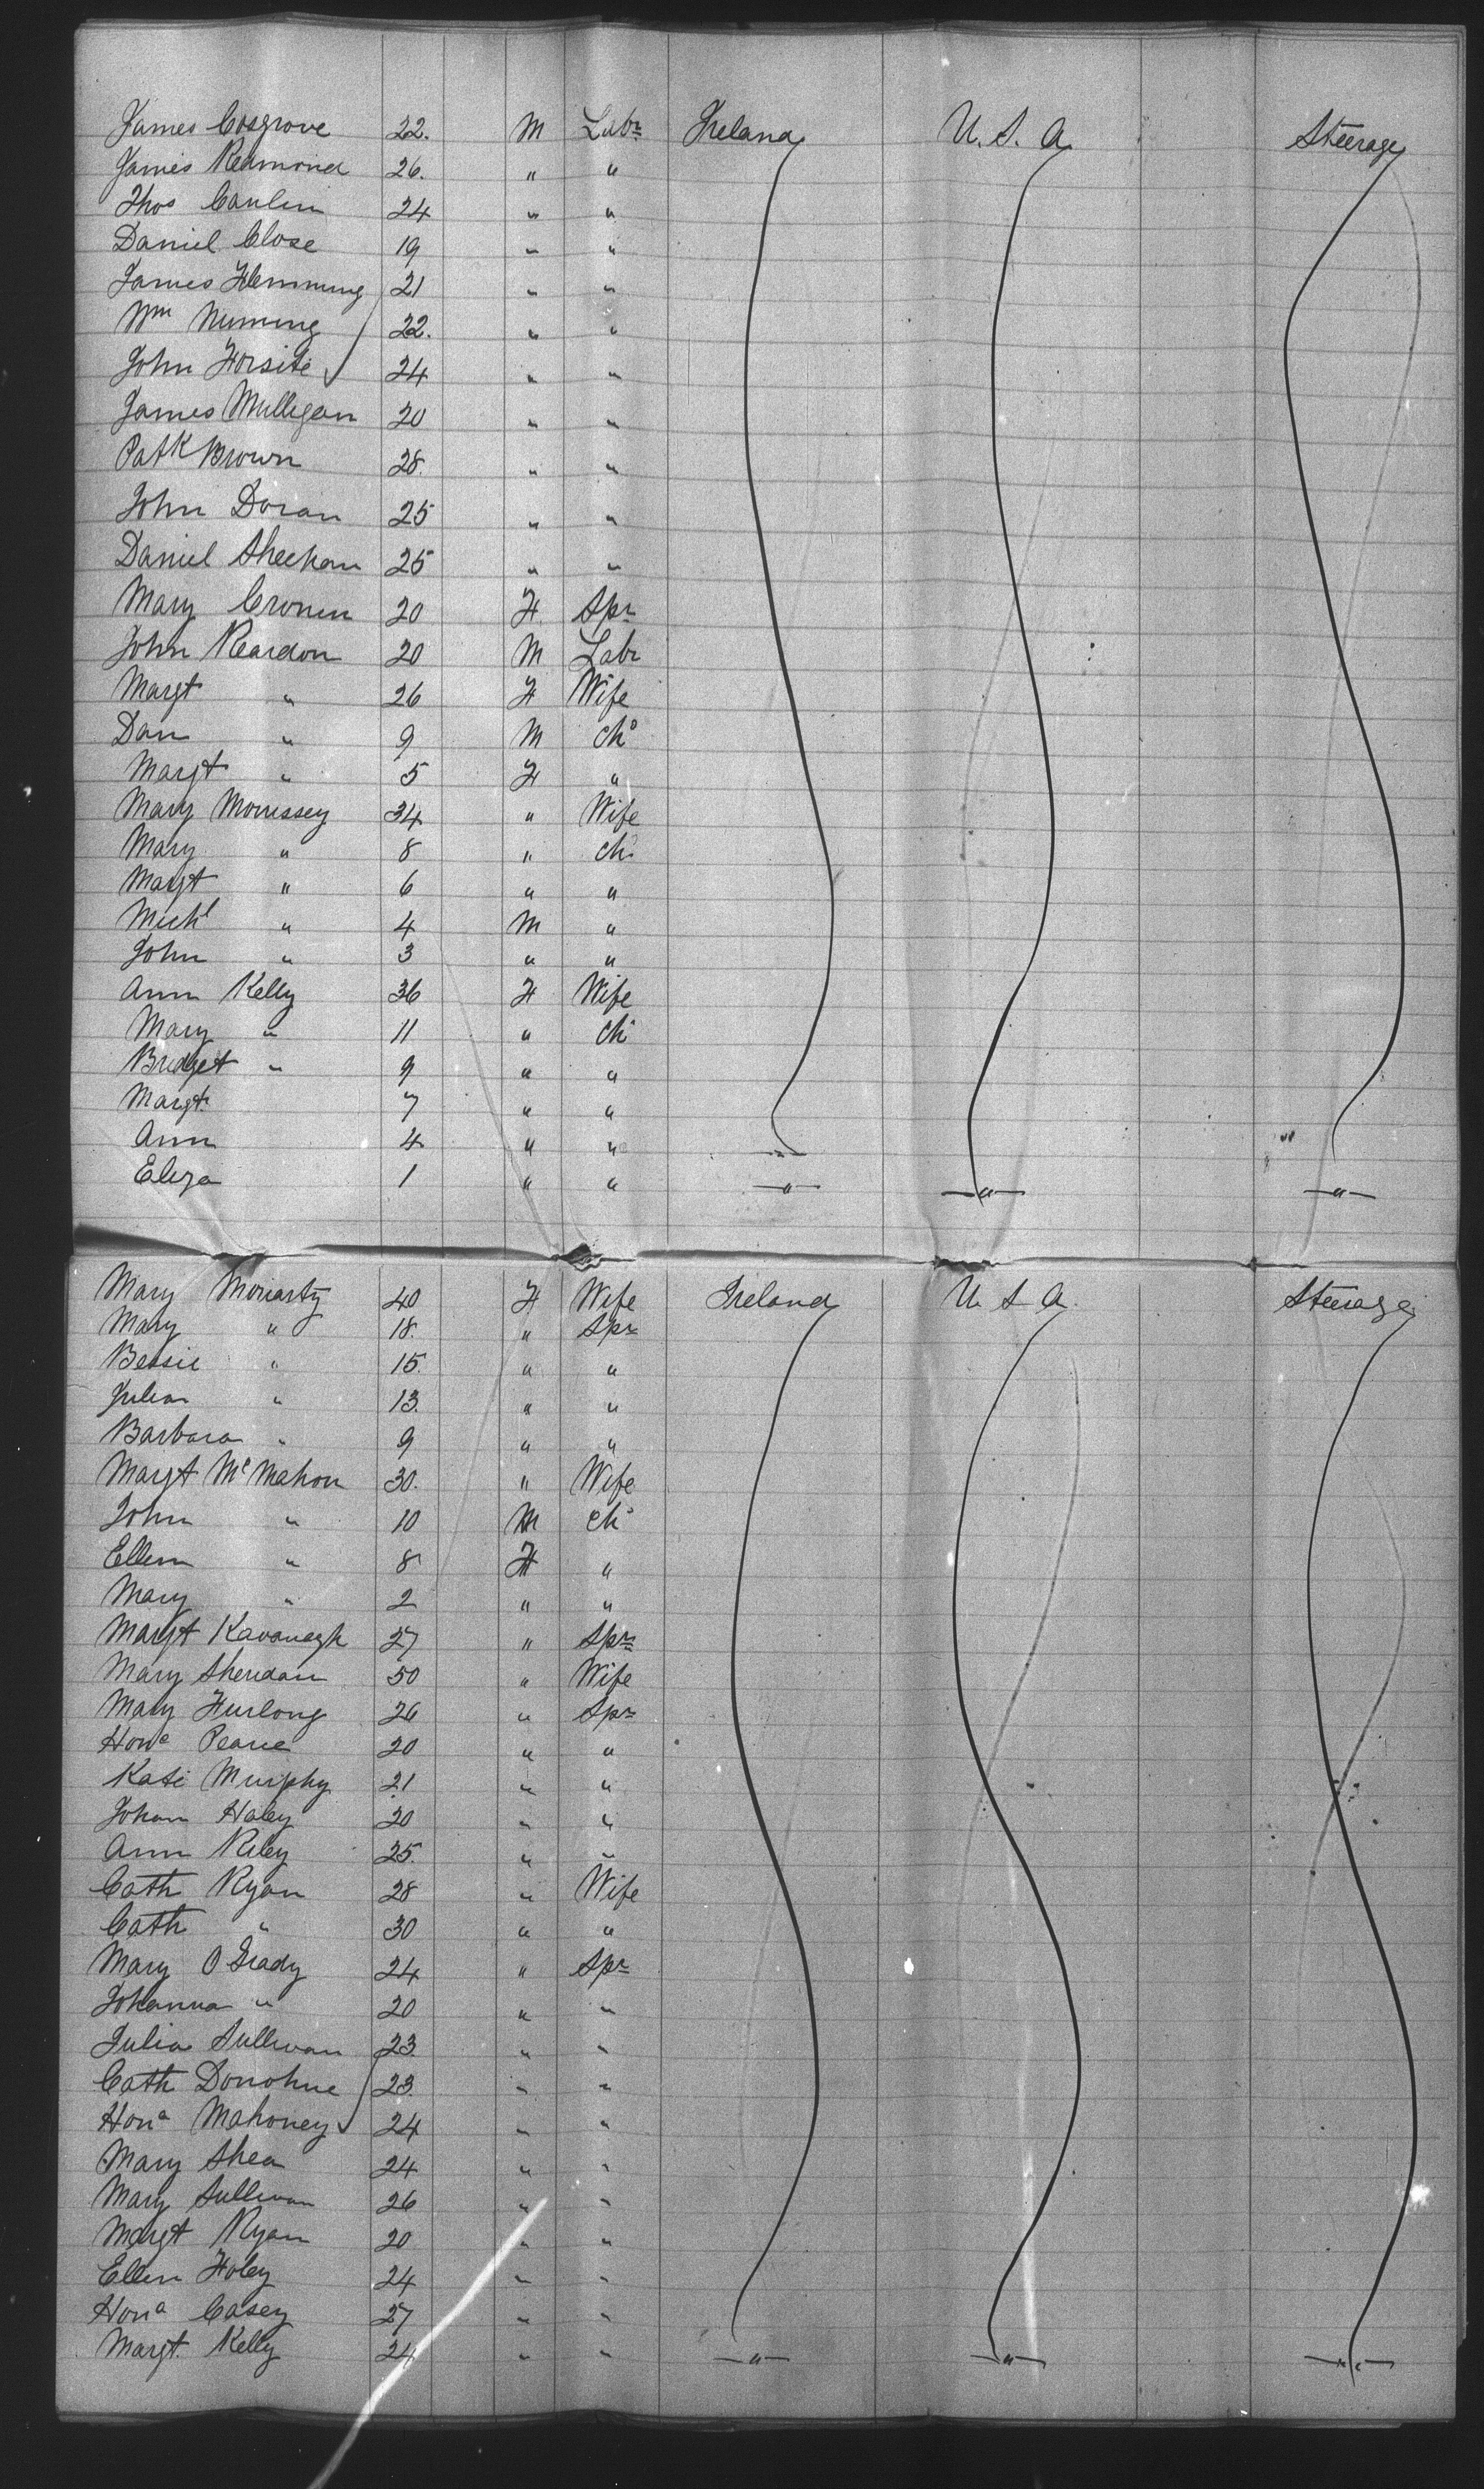 James Cosgrove 22. M Labr Ireland U. S. A. Steerage
James Redmond 26. " "
Thos Conlin 24 " "
Daniel Close 19 " "
James Flemming 21 " "
Wm 22. " "
John Forsite 24 " "
James Mulligan 20 " "
Patk Brown 28. " "
John Doran 25 " "
Daniel Sheehan 25 " "
Mary Cronin 20 F. Spr
John Reardon 20 M Labr
Margt " 26 F Wife
Dan " 9 M Ch
Margt " 5 F "
Mary Morrissey 34 " Wife
Mary " 8 " Ch
Margt " 6 " "
Michl " 4 M "
John " 3 " "
Ann Kelly 36 F Wife
Mary " 11 " Ch
Bridget " 9 " "
Margt 7 " "
Ann 4 " " "
Eliza 1 " " " " "
Mary Moriarty 40 F Wife Ireland U S A. Steerage
Mary " 18. " Spr
Bessie " 15. " "
Julia " 13. " "
Barbara " 9 " "
Margt McMahon 30. " Wife
John " 10 M Ch
Ellen " 8 F "
Mary " 2 " "
Margt Kavanagh 27 " Spr
Mary Sheridan 50 " Wife
Mary Furlong 26 " Spr
Hona Pearce 20 " "
Kate Murphy 21 " "
Johan Haley 20 " "
Ann Riley 25. " "
Cath Ryan 28 " Wife
Cath " 30 " "
Mary O Grady 24 " Spr
Johanna " 20 " "
Julia Sullivan 23. " "
Cath Donohue 23. " "
Hona Mahoney 24 " "
Mary Shea 24 " "
Mary Sullivan 26 " "
Margt Ryan 20 " "
Ellen Foley 24 " "
Hona Casey 27 " "
Margt. Kelly 24 " " " " "